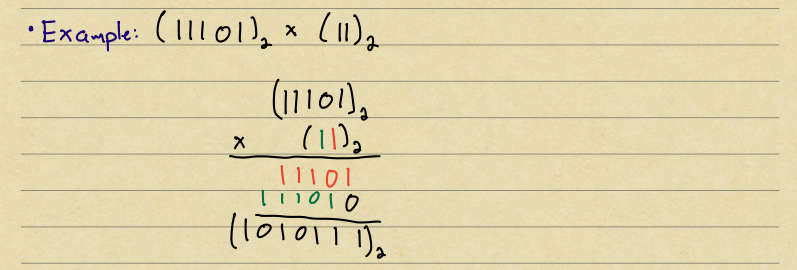 • Example: (11101)₂ × (11)₂
(11101)₂
× (11)₂
11101
111010
(1010111)₂